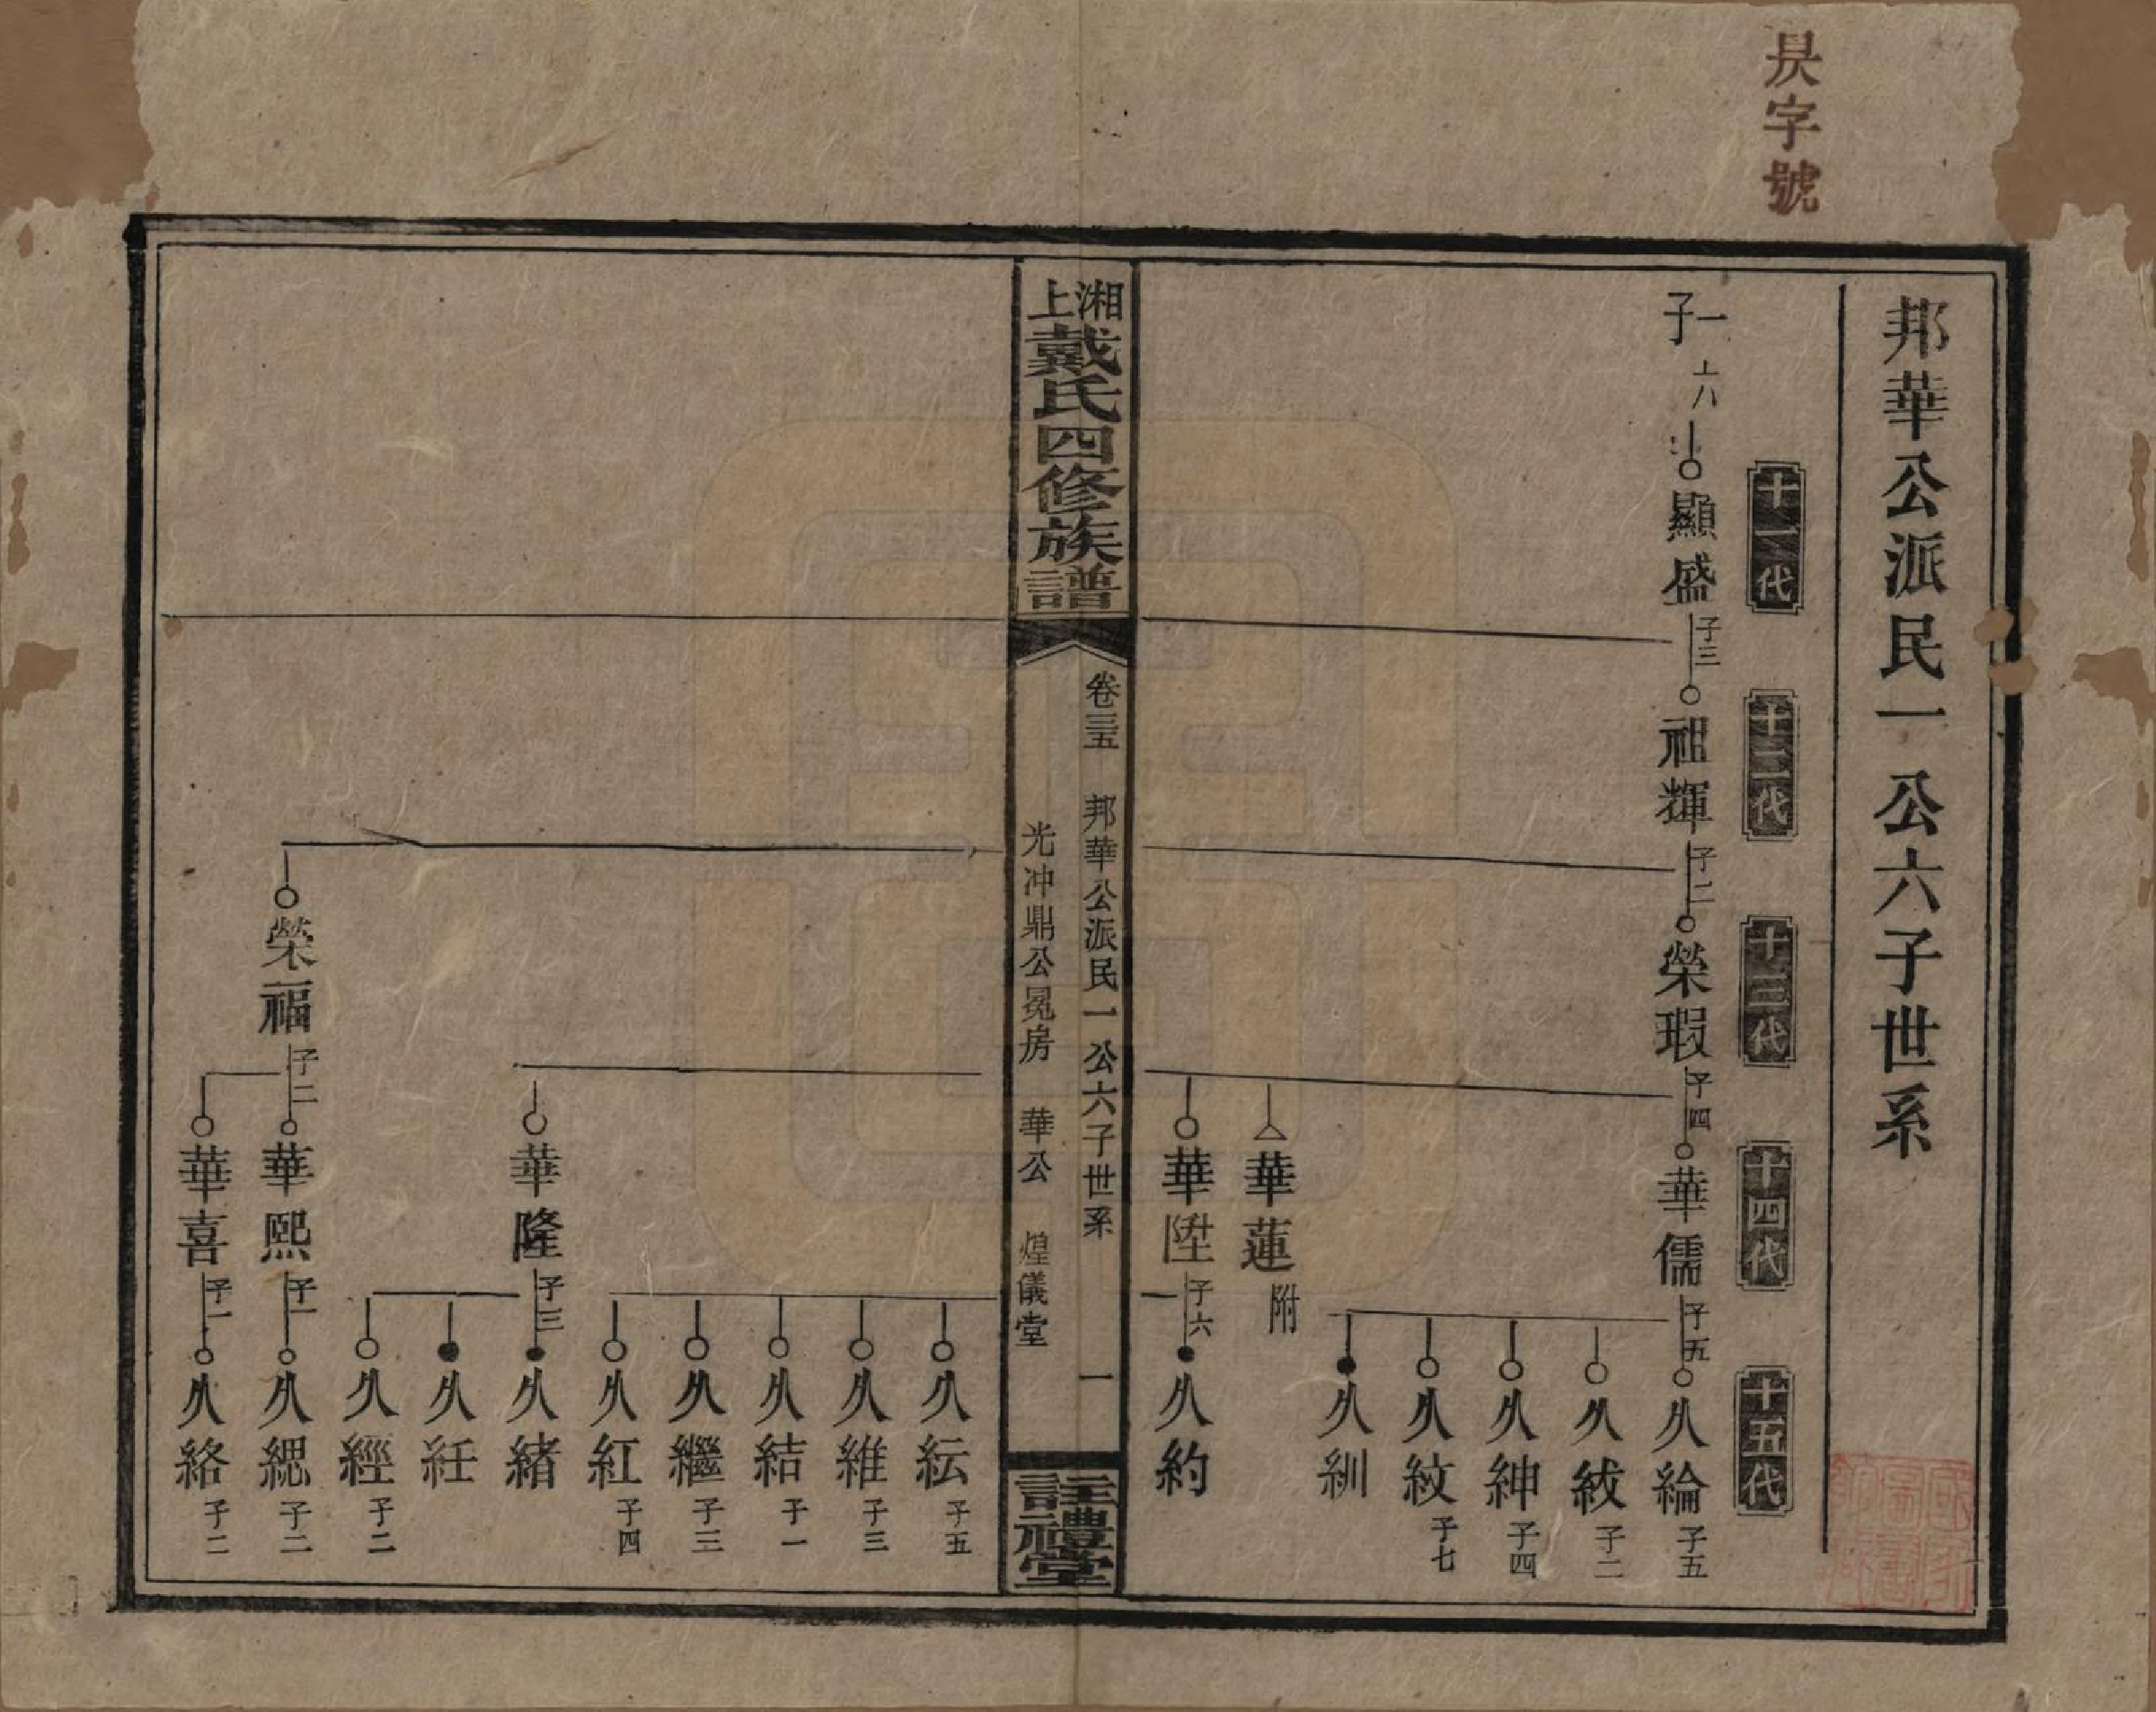 昃字號
邦華公派民一公六子世系
十一代
十二代
十三代
十四代
十五代
一子
顯盛 子三
祖輝 子二
榮瑕 子四
華儒 子五
久綸 子五
久紱 子二
久紳 子四
久紋 子七
久紃
華蓮 附
華陞 子六
久約
湘上戴氏四修族譜
卷三五 邦華公派民一公六子世系 一
光冲鼎公冕房 華公 煌儀堂
註禮堂
久紜 子五
久維 子三
久結 子一
久繼 子三
久紅 子四
華隆 子三
久緒
久紝
久經 子二
榮福 子二
華熙 子一
久緦 子二
華喜 子一
久絡 子二